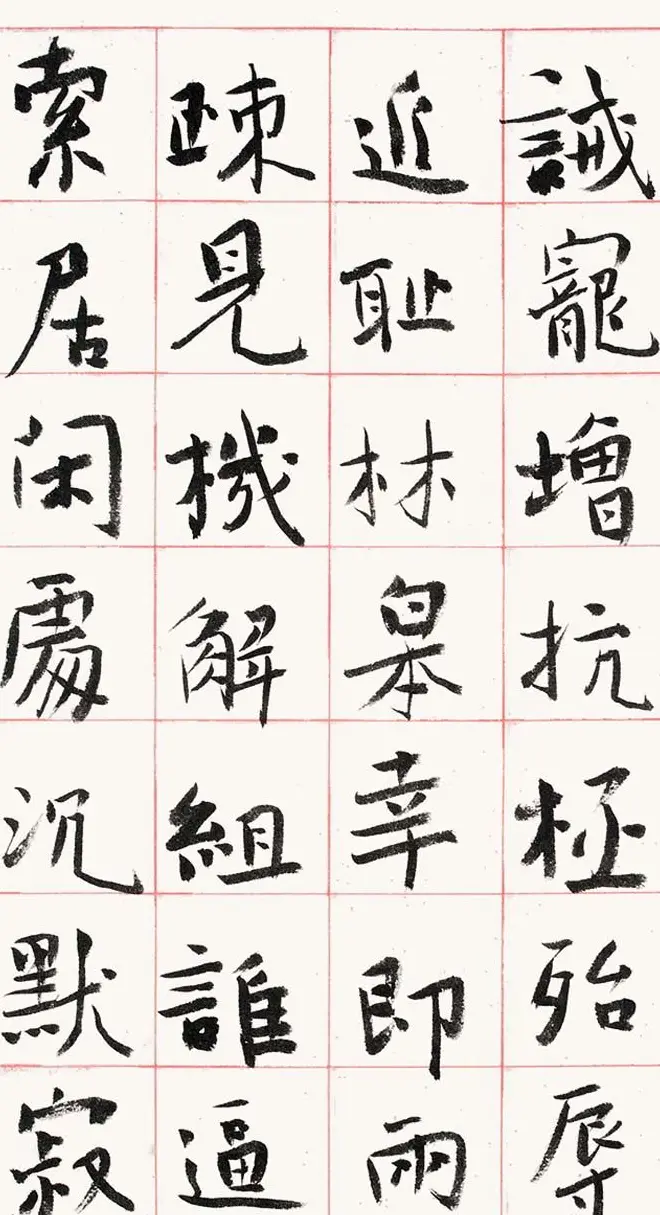 誡寵增抗極殆辱
近恥林皋幸即兩
疎見機解組誰逼
索居閑處沉默寂